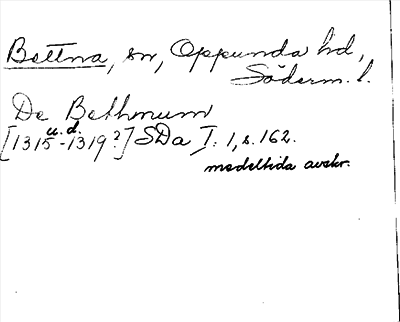 Bettna, sn, Oppunda hd,
Söderm. l.
De Bethnum
u.d.
[1315-1319?] SDa I:1, s. 162.
medeltida avskr.